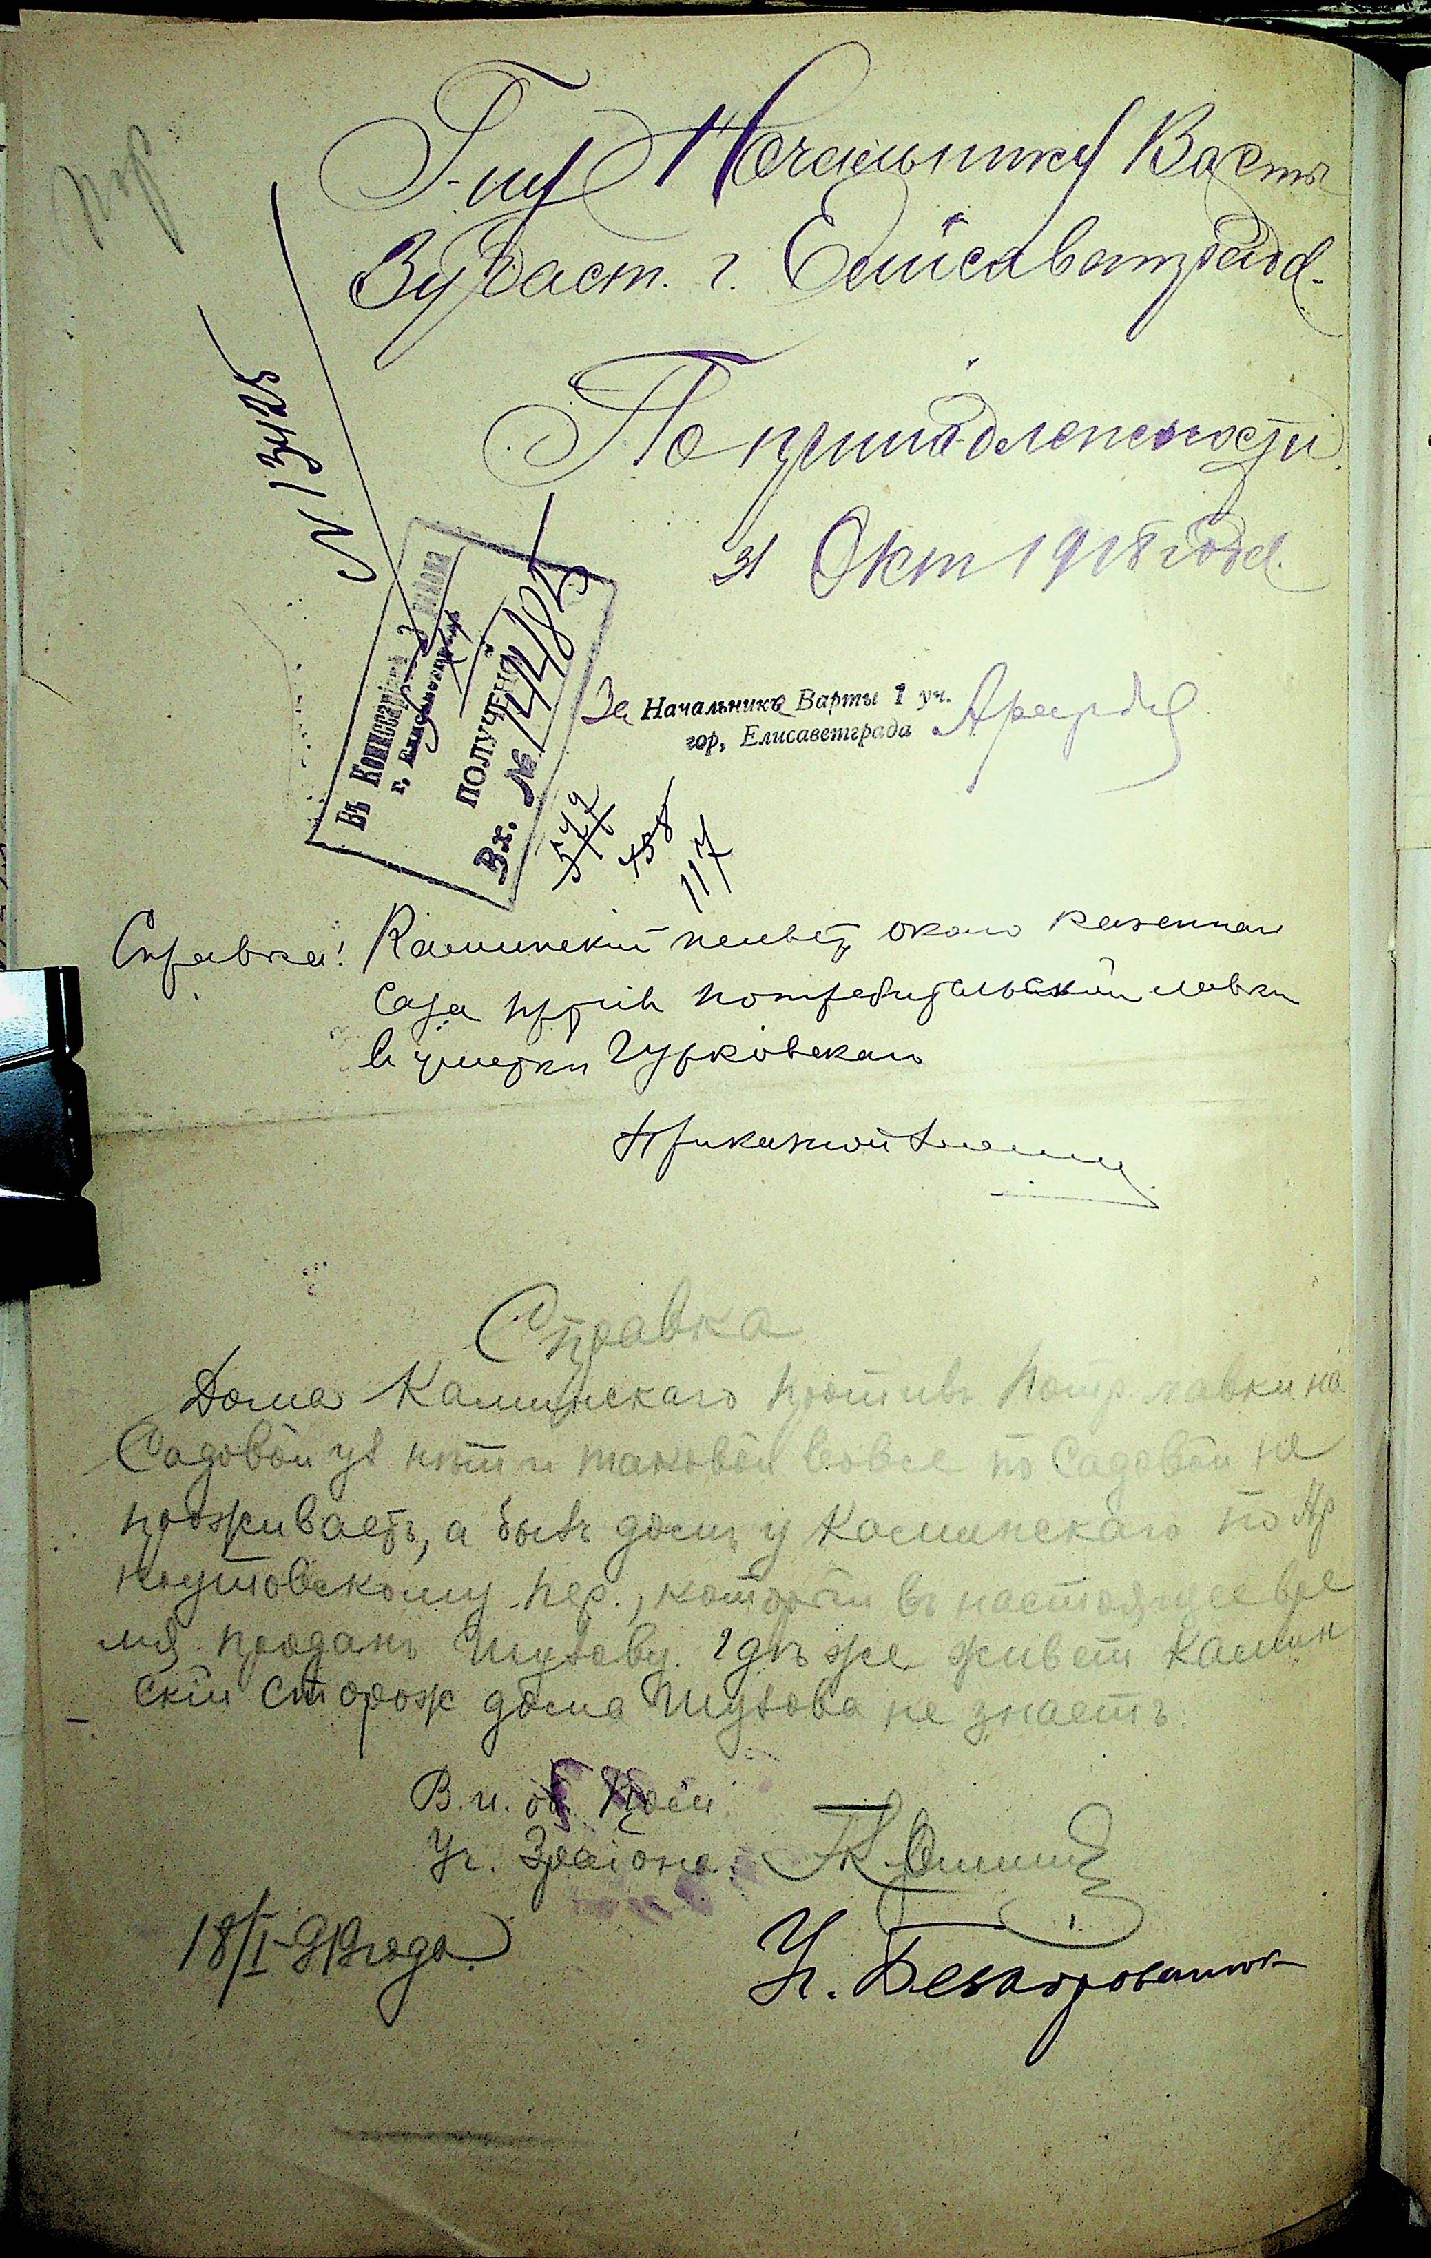 Г-ну Начальнику Варты
3 участ. г. Елисаветграда.
По принадлежности
31 Окт 1918 года.
N 13425
Въ Комиссаріатъ 3 района
г. Елисаветграда
ПОЛУЧЕНО
Вх. №
За Начальника Варты 1 уч.
гор, Елисаветграда
117
Справка: Каминскій живетъ около казеннаго
сада против потребительской лавки
Гурковскаго
Справка
Дома Каминскаго противъ Потр. лавки на
Садовой ул нѣт и таковой вовсе по Садовой не
проживаетъ, а былъ домъ у Каминскаго по Ар
наутовскому пер., который въ настоящее вре
мя проданъ Шутову. Гдѣ же живет Камин
скій сторож дома Шутова не знаетъ.
В. и. об.
Уч. 3 района
18/I-919 года